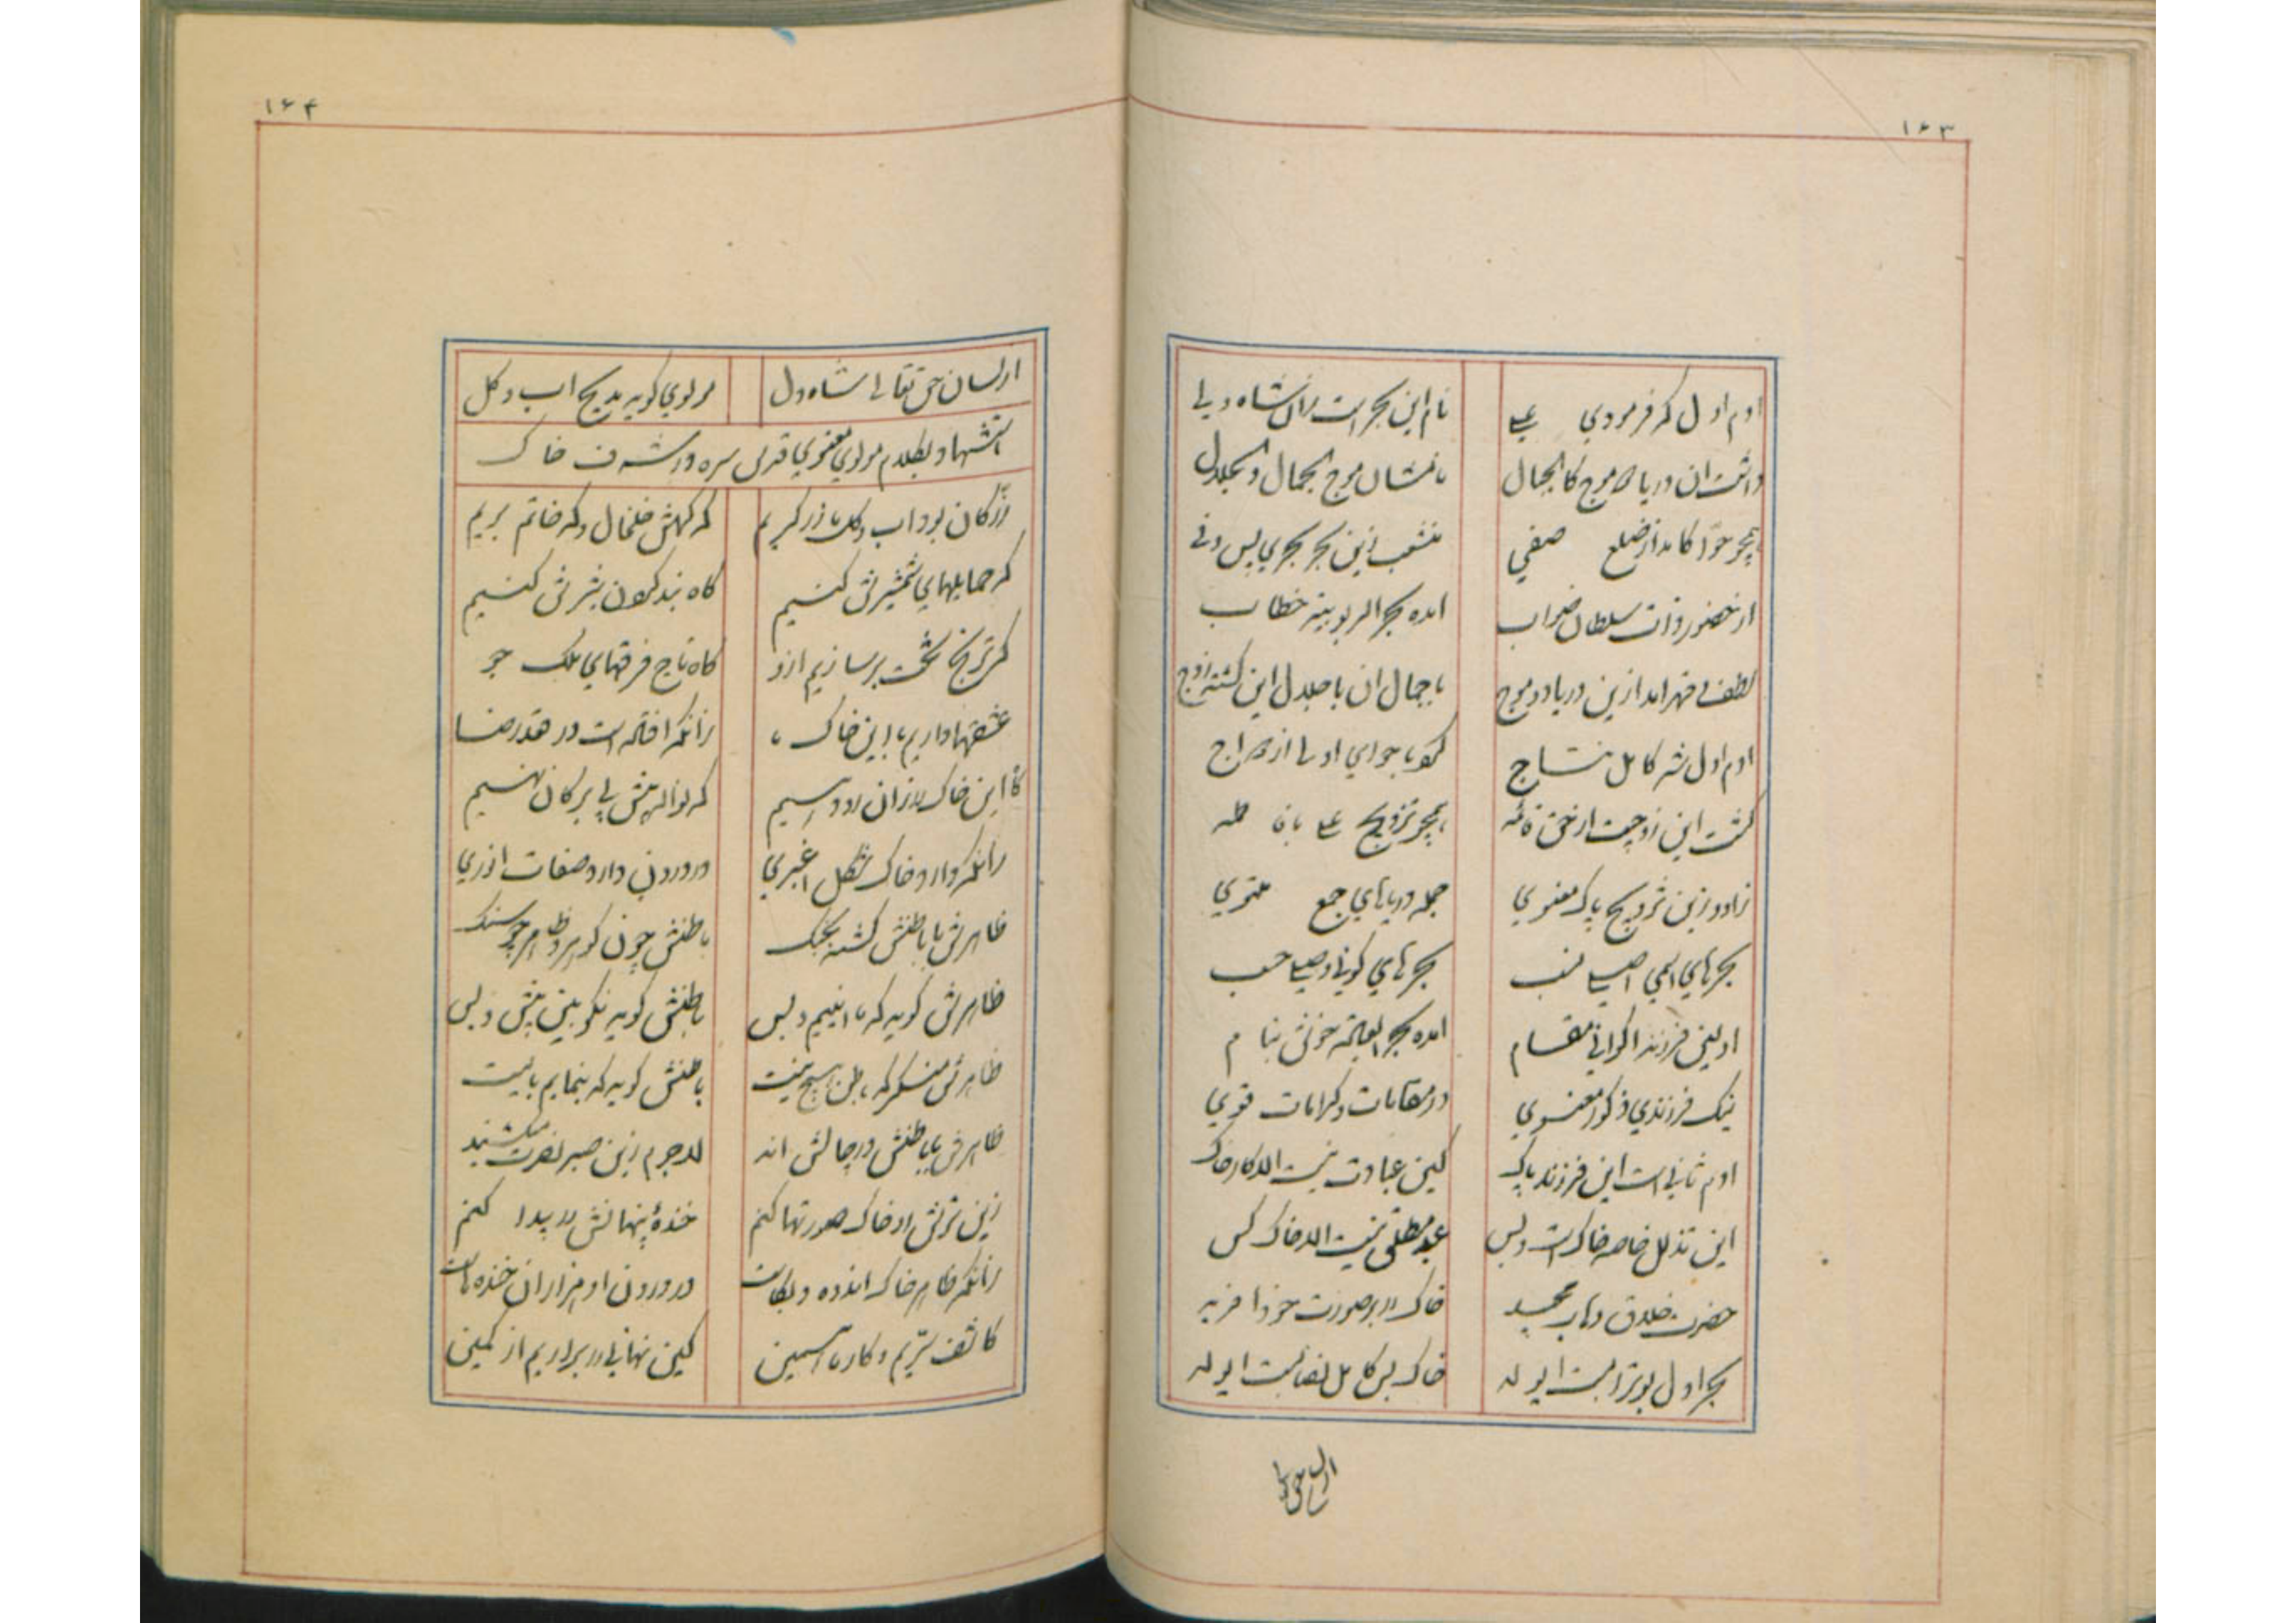 ۱۶۳
آدم اول که فرمودی علی نام این بحر است زان شاه ولی
داشت آن دریا موج کالجمال با نشان موج الجمال و الجلال
همچو حوا کامد از ضلع صفی منشعب زین بحر بحری بس وفی
از حضور ذات سلطان صواب آمده بحر الربوبیه خطاب
لطف و قهر آمد ازین دریا دو موج با جمال آن با جلال این گشته زوج
آدم اول شه کامل نتاج کو با حوای اولی ازدواج
گشت این زوجیت از حق قائمه همچو تزویج علی با فاطمه
زاد و زین تزویج پاک معنوی جمله دریاهای جمع مثنوی
بحرهای اسمی اصلی نسب بحرهای کونی وصلی حسب
اولین فرزند اکوانی مقام آمده بحر العبودیه بنام
نیک فرزندی ذکور معنوی در مقامات و کرامات قوی
آدم ثانی است این فرزند پاک کین عبادت نیست الا کار خاک
این تذلل خاصه خاک است و بس عبد مطلق نیست الا خاک کس
حضرت خلاق وهاب مجید خاک را بر صورت خود آفرید
بحر اول بوتراب است ای ولد خاک بس کامل نصاب است ای ولد
از لسان حق تعالی
۱۶۴
از لسان حق تعالی شاه دل مولوی گوید بمدیح آب و گل
استشهاد بکلام مولوی معنوی قدس سره در شرف خاک
زر کان بود آب و گل ما زرگریم که گهش خلخال و گه خاتم بریم
گه حمایلهای شمشیرش کنیم گاه بند گردن شیرش کنیم
گه ترنج تخت برسازیم ازو گاه تاج فرقهای ملک جو
عشقها داریم با این خاک ما زانکه افتاده است در قعده رضا
کاین خاک را زان رو دهیم که نواله پیش بی برگان نهیم
زانکه دارد خاک شکل اغبری در درون دارد صفات انوری
ظاهرش با باطنش گشته بجنگ باطنش چون گوهر و ظاهر چو سنگ
ظاهرش گوید که ما اینیم و بس باطنش گوید نکو بین پیش و پس
ظاهرش منکر که باطن هیچ نیست باطنش گوید که بنماییم بایست
ظاهرش با باطنش در چالش اند لاجرم زین صبر نصرت میکشند
زین ترش رو خاک صورتها کنیم خنده پنهانش را پیدا کنیم
زانکه ظاهر خاک اندوه و بکاست در درون او هزاران خنده هاست
کاشف سریم و کار ما همین کین نهانی را برآریم از کمین